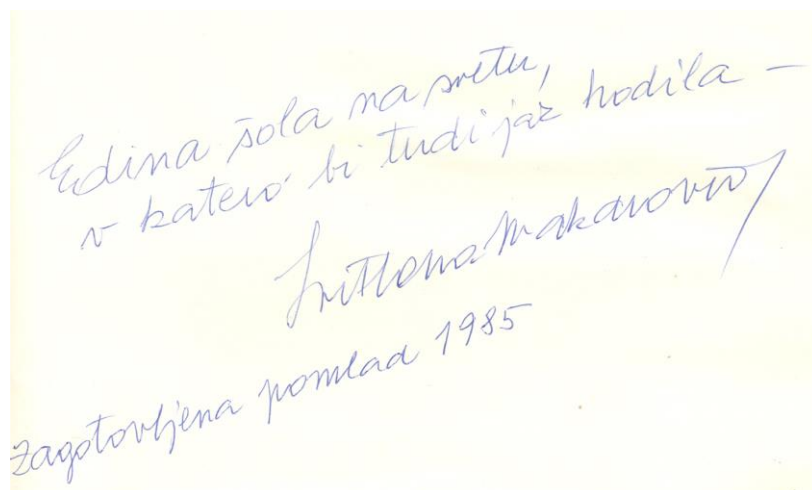 Edina šola na svetu,
v katero bi tudi jaz hodila –
Svetlana Makarovič
Zagotovljena pomlad 1985